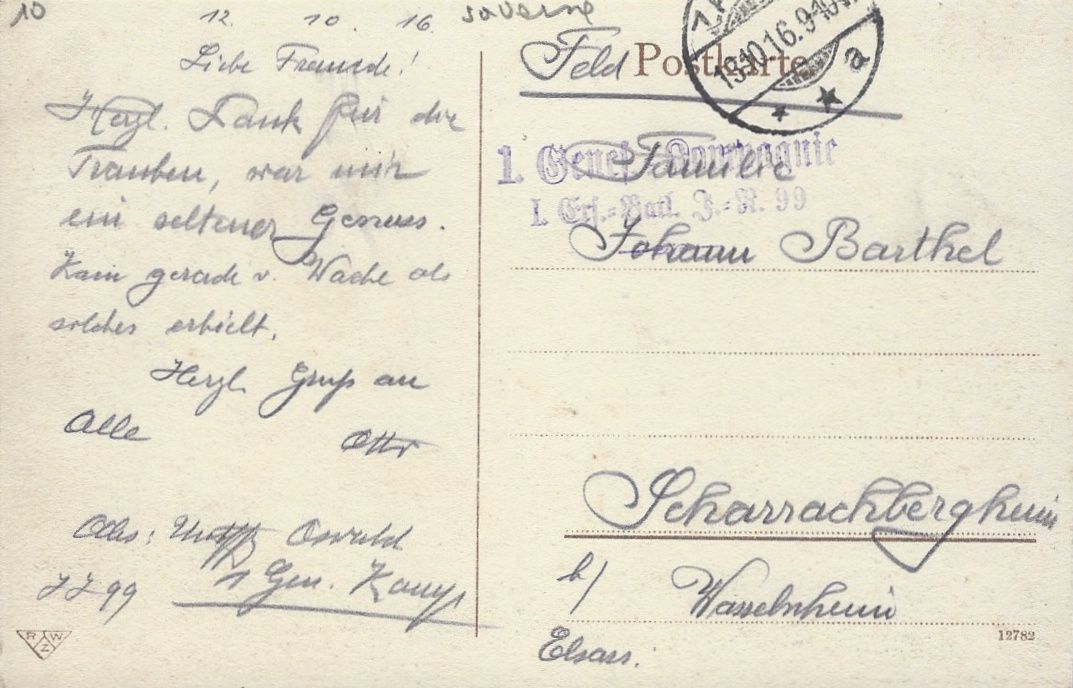 10
12. 10. 16. Saverne
Liebe Freunde!
Herzl. Dank für die
Trauben, war mir
ein seltener Genuss.
Kam gerade v. Wache als
solches erhielt.
Herzl. Gruß an
Alle Otto
Abs: Untffz Oswald
1 Gen. Komp
I J 99
R W Z
Feld Postkarte
13.10.16.9-10V.
a
1. Genes. Kompagnie
I. Ers.-Batl. J.-R. 99
Familie
Johann Barthel
Scharrachbergheim
b/ Wasselnheim
Elsass.
12782